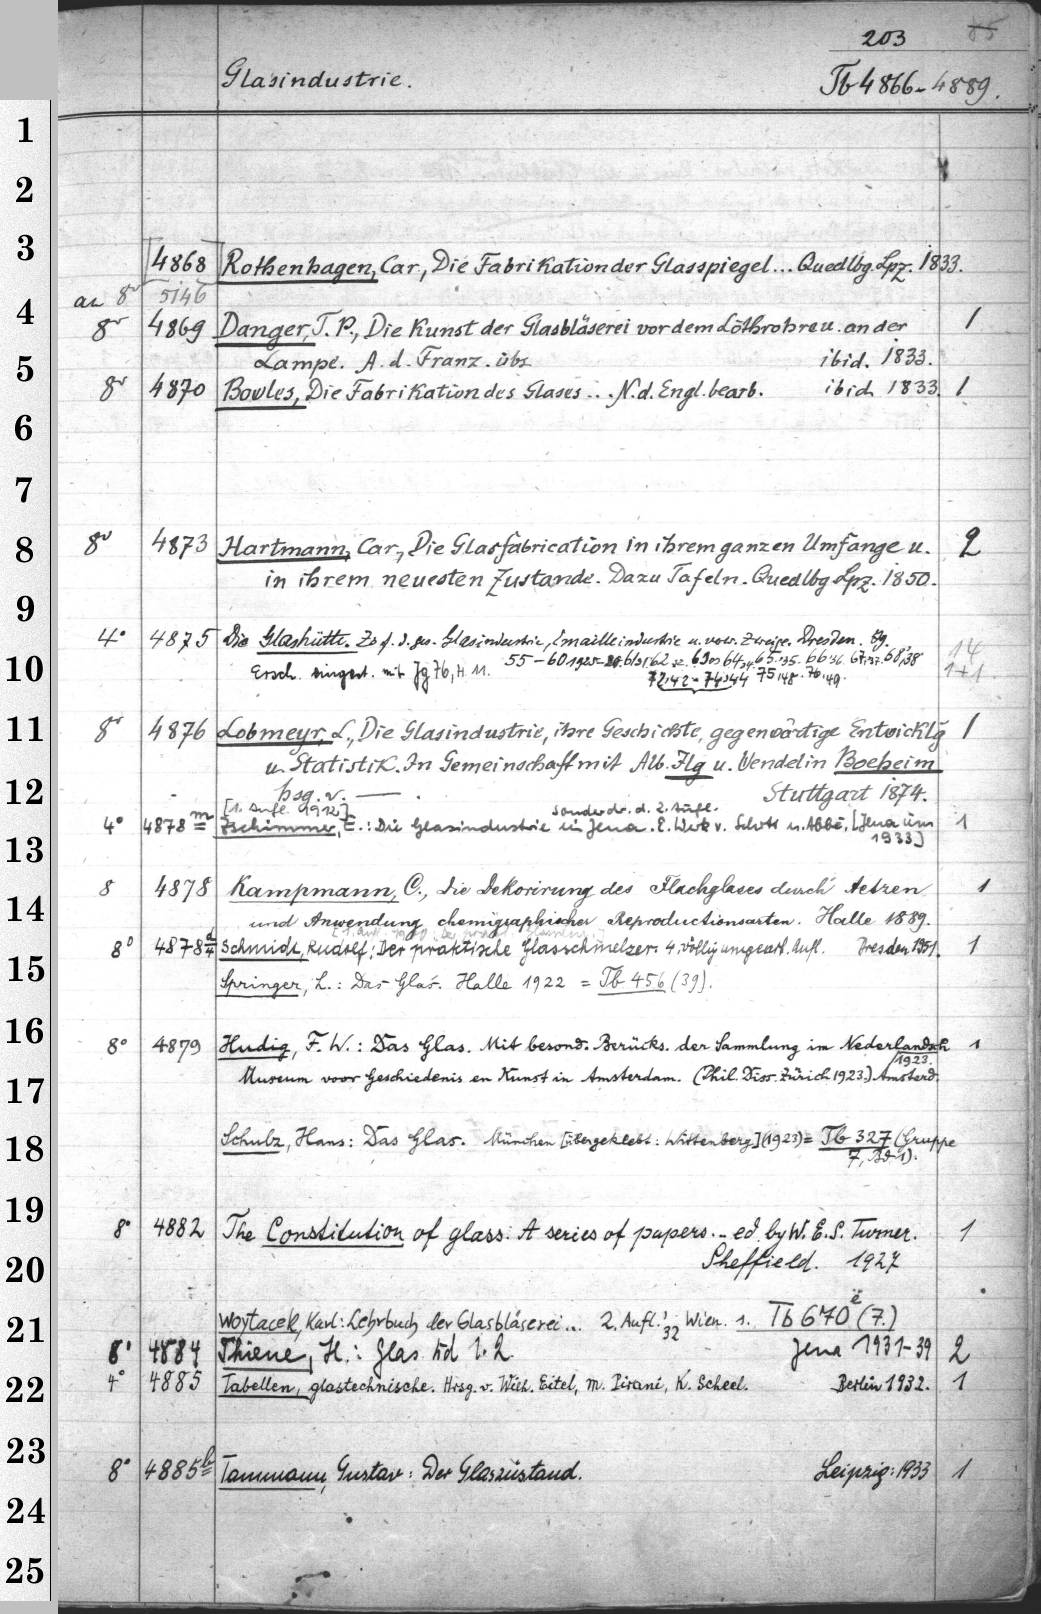 203 85
Glasindustrie. Tb 4866-4889.
1
2
3
4868 Rothenhagen, Car., Die Fabrikation der Glasspiegel... Quedlbg. Lpz. 1833.
an 8° 5146
4
8° 4869 Danger, T. P., Die Kunst der Glasbläserei vor dem Löthrohre u. an der 1
Lampe. A. d. Franz. übs ibid. 1833.
5
8° 4870 Bowles, Die Fabrikation des Glases... N. d. Engl. bearb. ibid 1833. 1
6
7
8
8° 4873 Hartmann, Car., Die Glasfabrication in ihrem ganzen Umfange u. 2
in ihrem neuesten Zustande. Dazu Tafeln. Quedlbg Lpz. 1850.
9
4° 4875 Die Glashütte. Zs f. d. ges. Glasindustrie, Emailleindustrie u. verw. Zweige. Dresden. Jg. 14
10
55-60 1925- 61,31. 62,32. 63,33 64,34. 65,35. 66,36. 67,37. 68,38
Ersch. eingest. mit Jg 76, H 11. 72,42-74,44 75,48. 76,49. 1+1
11
8° 4876 Lobmeyr, L., Die Glasindustrie, ihre Geschichte, gegenwärtige Entwicklg 1
u. Statistik. In Gemeinschaft mit Alb. Ilg u. Wendelin Boeheim
12
hsg. v. —. Stuttgart 1874.
[1. Aufl. 1912] Sonderdr. d. 2. Aufl.
4° 4878 m Zschimmer, E.: Die Glasindustrie in Jena. E. Werk v. Schott u. Abbé. [Jena um 1
1933]
13
8 4878 Kampmann, C., Die Dekorirung des Flachglases durch Aetzen 1
14
und Anwendung chemigraphischer Reproductionsarten. Halle 1889.
8° 4878 d Schmidt, Rudolf: Der praktische Glasschmelzer. 4. völlig umgearb. Aufl. Dresden 1951. 1
15
Springer, L.: Das Glas. Halle 1922 = Tb 456 (39).
16
8° 4879 Hudig, F. W.: Das Glas. Mit besond. Berücks. der Sammlung im Nederlandsch 1
1923.
17
Museum voor Geschiedenis en Kunst in Amsterdam. (Phil. Diss. Zürich 1923.) Amsterd.
18
Schulz, Hans: Das Glas. München [übergeklebt: Wittenberg] (1923) = Tb 327 (Gruppe
7, Bd 1).
19
8° 4882 The Constitution of glass. A series of papers... ed. by W. E. S. Turner. 1
20
Sheffield. 1927
21
Woytacek, Karl: Lehrbuch der Glasbläserei... 2. Aufl. '32 Wien. s. Tb 670 e (7.)
8° 4884 Thiene, H.: Glas Bd 1. 2. Jena 1931-39 2
22
4° 4885 Tabellen, glastechnische. Hrsg. v. Wilh. Eitel, M. Pirani, K. Scheel. Berlin 1932. 1
23
8° 4885 b Tammann, Gustav: Der Glaszustand. Leipzig: 1933 1
24
25